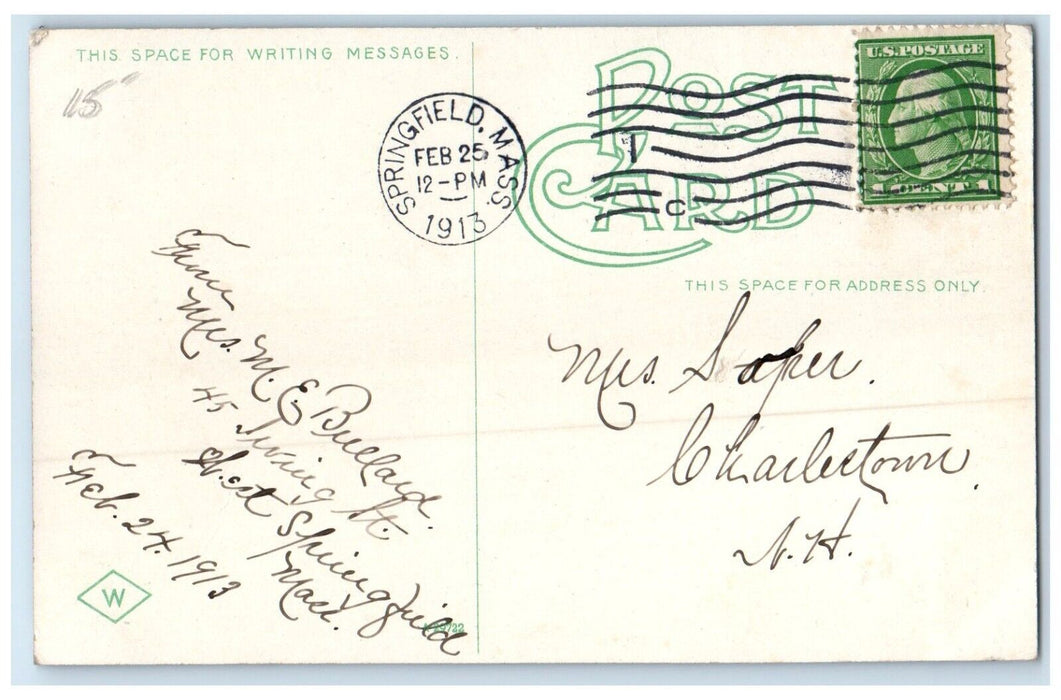 THIS SPACE FOR WRITING MESSAGES.
POST CARD
15
SPRINGFIELD, MASS.
FEB 25
12-PM
1913
T
C
U.S.POSTAGE
1 CENT 1
THIS SPACE FOR ADDRESS ONLY.
From
Mrs. M. E. Bullard.
45 Irving St.
West Springfield
Mass.
Feb. 24. 1913
Mrs. Soper.
Charlestown,
N.H.
W